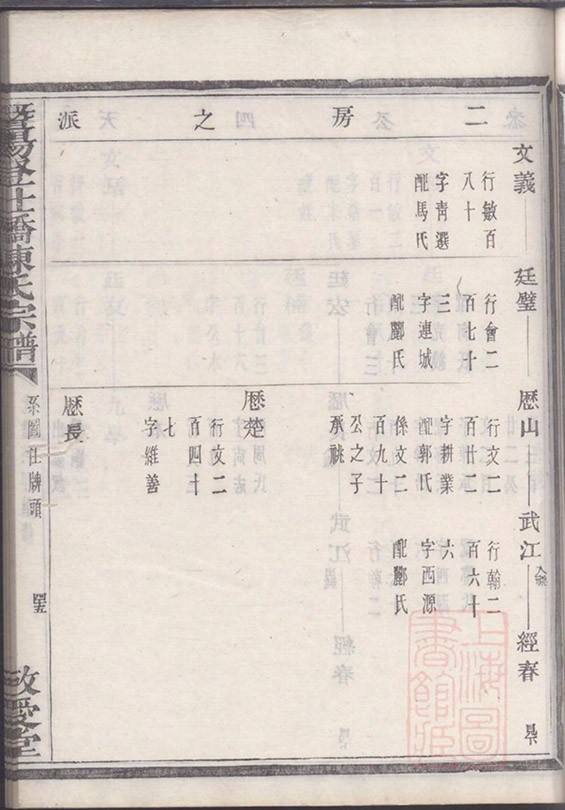 二房之派
文義
行敏百
八十
字青選
配馬氏
廷璧
行會二
百七十
三
字連城
配酈氏
歷山
行文二
百廿二
字耕業
配郭氏
係文二
百九十
丞之子
承祧
歷楚
行文二
百四十
七
字維善
歷長
武江
行翰二
百六十
六
字西源
配酈氏
經春
暨陽
橋陳氏宗譜
系圖
牌頭
敬愛堂
上海圖書館藏